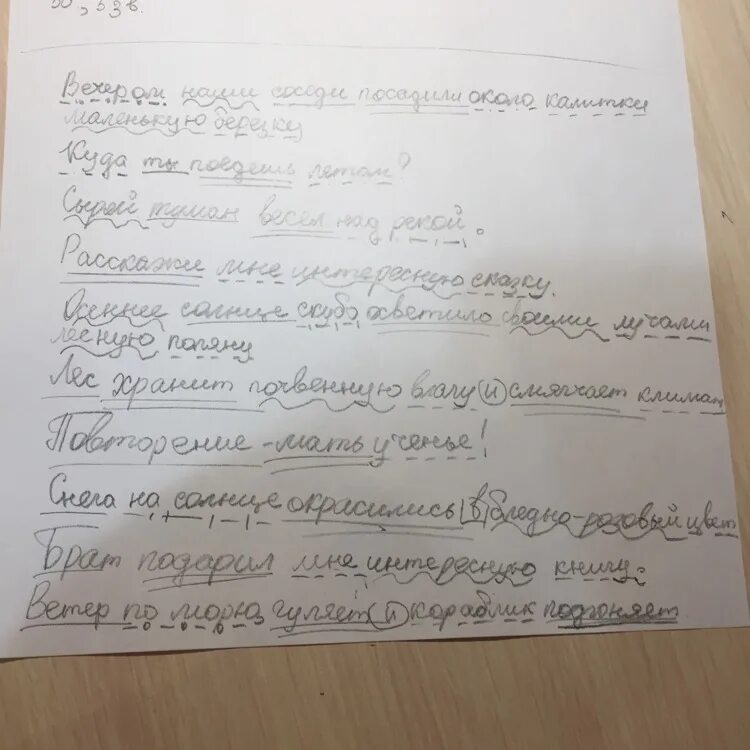 30, 33 в.
Вечером наши соседи посадили около калитки
маленькую березку
Куда ты поедешь летом?
Сырой туман весел над рекой.
Расскажи мне интересную сказку.
Осеннее солнце скубо осветило своими лучами
лесную поляну
Лес хранит почвенную влагу и смягчает климат
Повторение - мать ученье!
Снега на солнце окрасились в бледно-розовый цвет
Брат подарил мне интересную книгу.
Ветер по морю гуляет и кораблик подгоняет